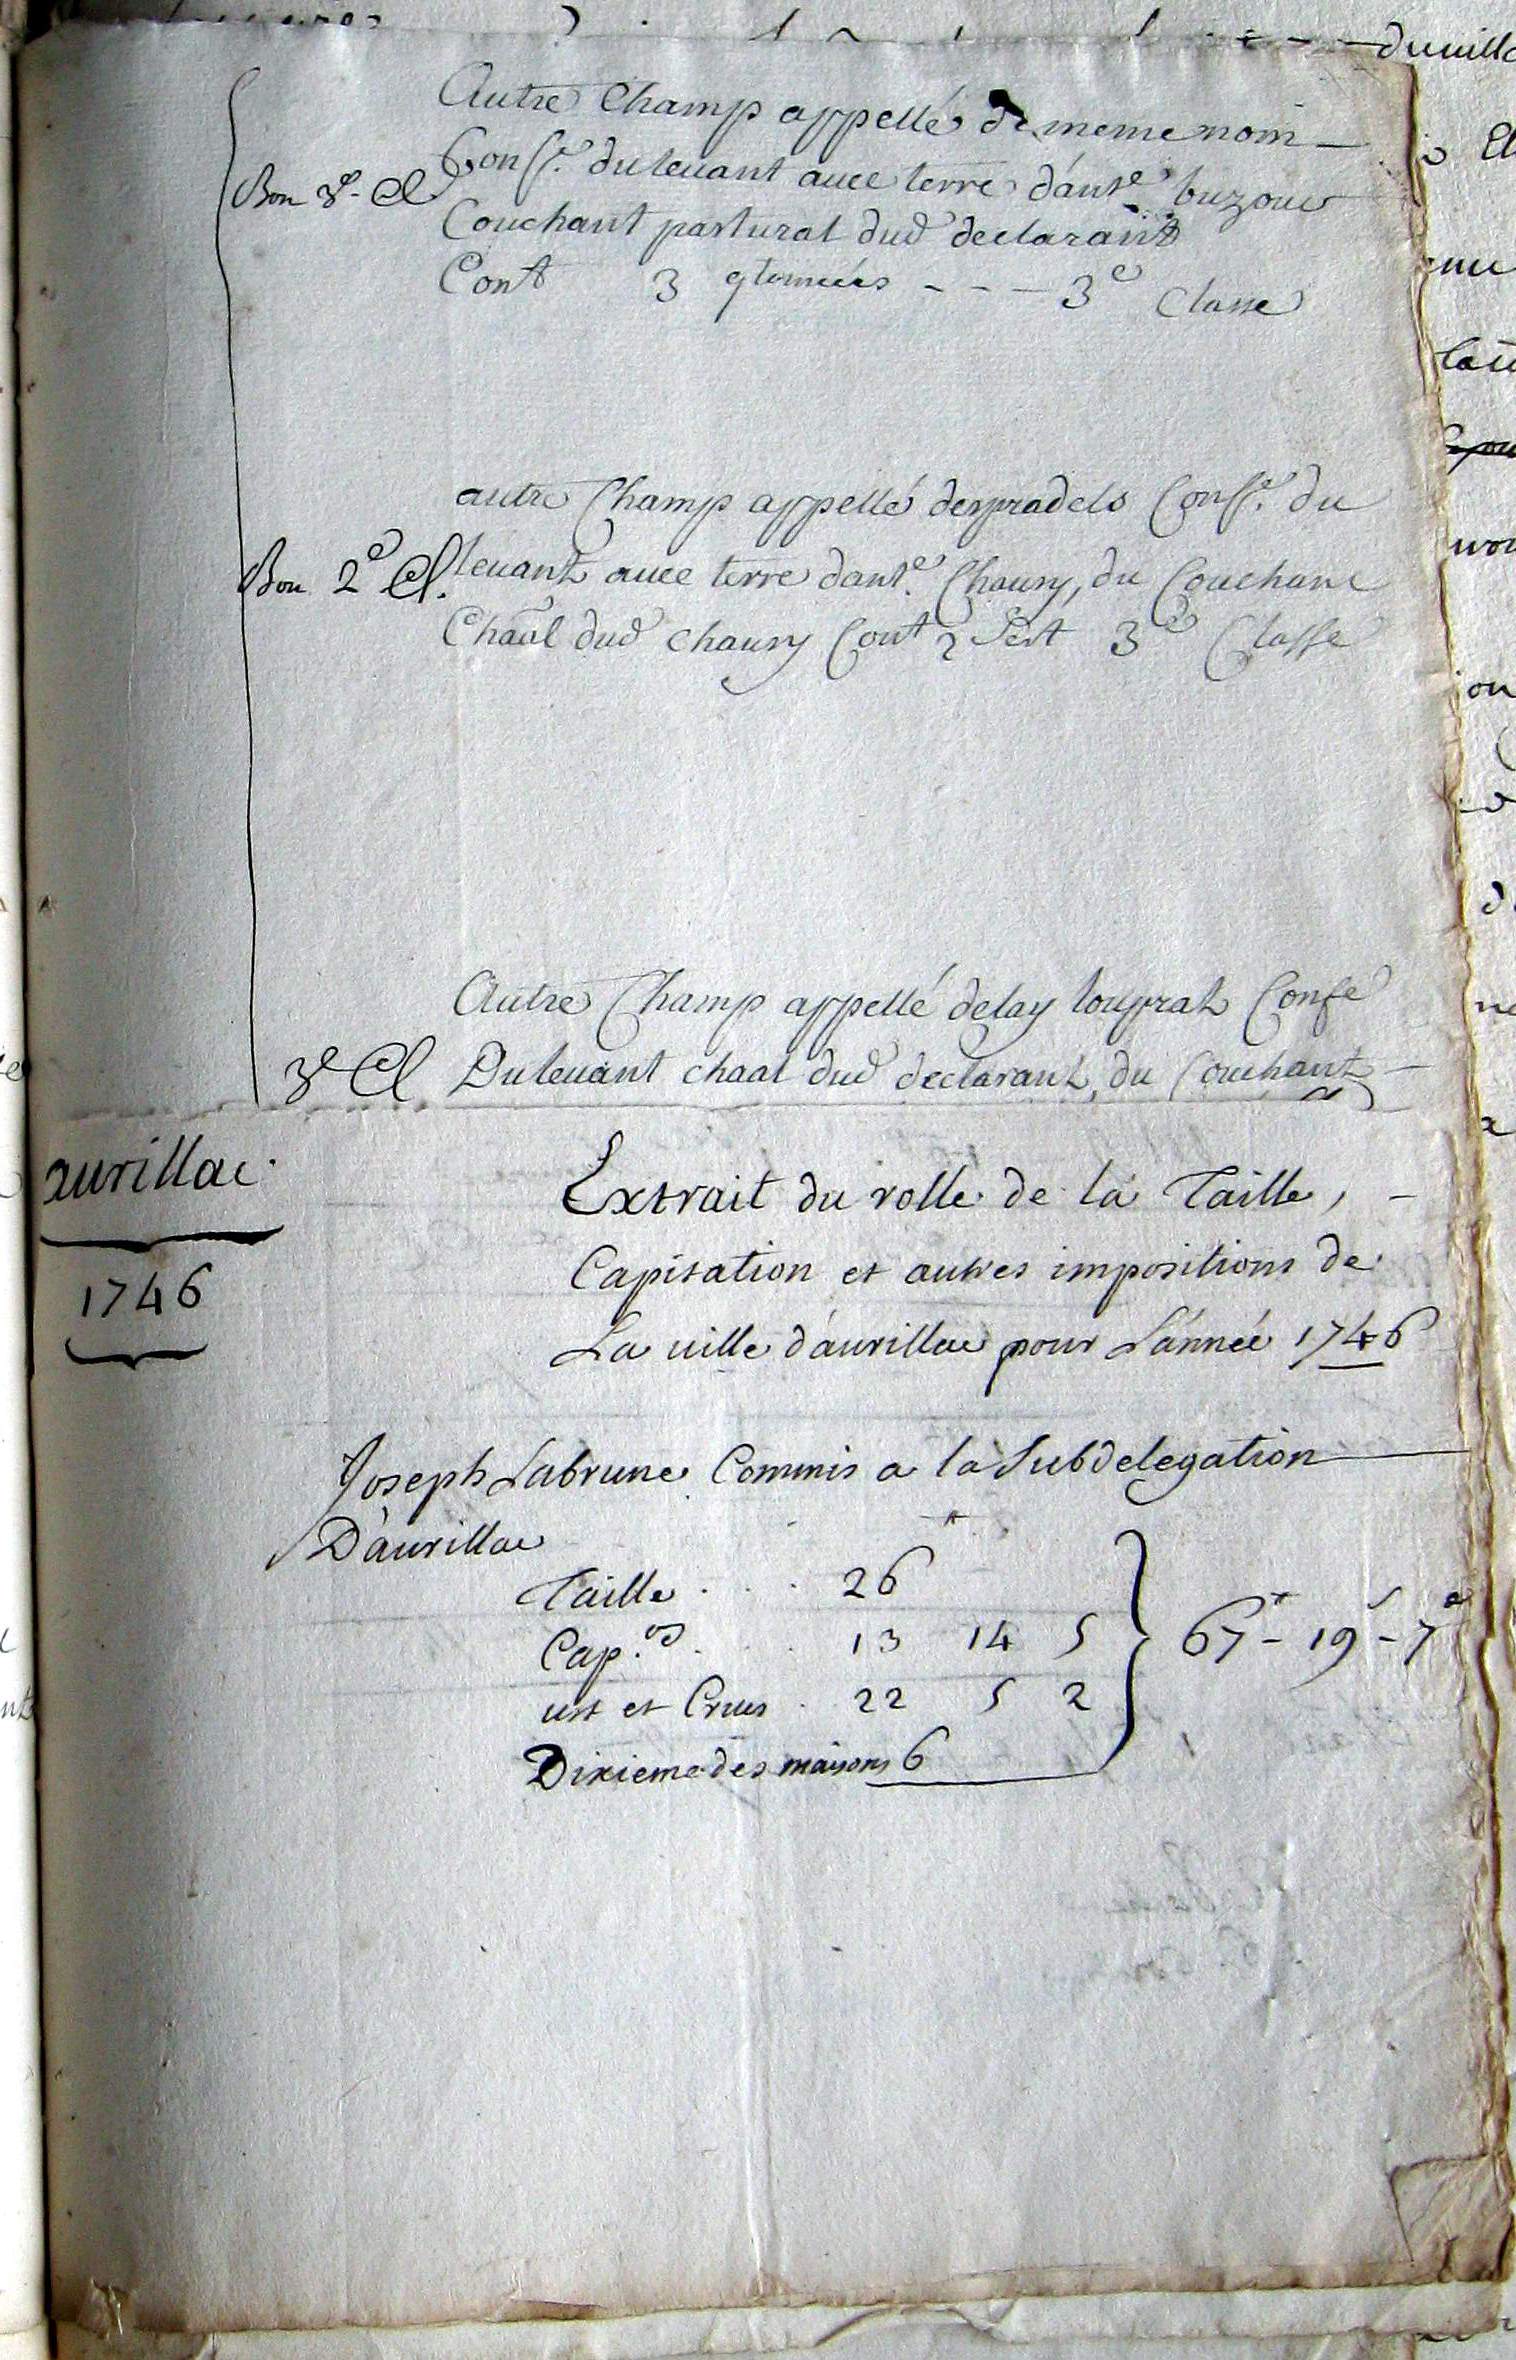 Autre Champ appellé de meme nom
Bon 3e Cl Conf.e du leuant auec terre d'ant.e buzou
Couchant pastural dud declarant
Cont 3 qtonnées - - - 3e Classe
autre Champ appellé despradels Conf.e du
Bon 2e Cl. leuant auec terre dant.e Chaury, du Couchant
Chaal dud chaury Cont 2 Sest 3e Classe
Autre Champ appellé delay louprat Confe
3e Cl Du leuant chaal dud declarant, du Couchant
aurillac.
1746
Extrait du rolle de la Taille,
Capitation et autres impositions de
La uille d'aurillac pour L'année 1746
Joseph Labrune Commis a la Subdelegation
D'aurillac
Taille . . . 26
Cap.on . . 13 14 5
ust et Crues . 22 5 2
67 - 19 s - 7 d
Dixieme des maisons 6